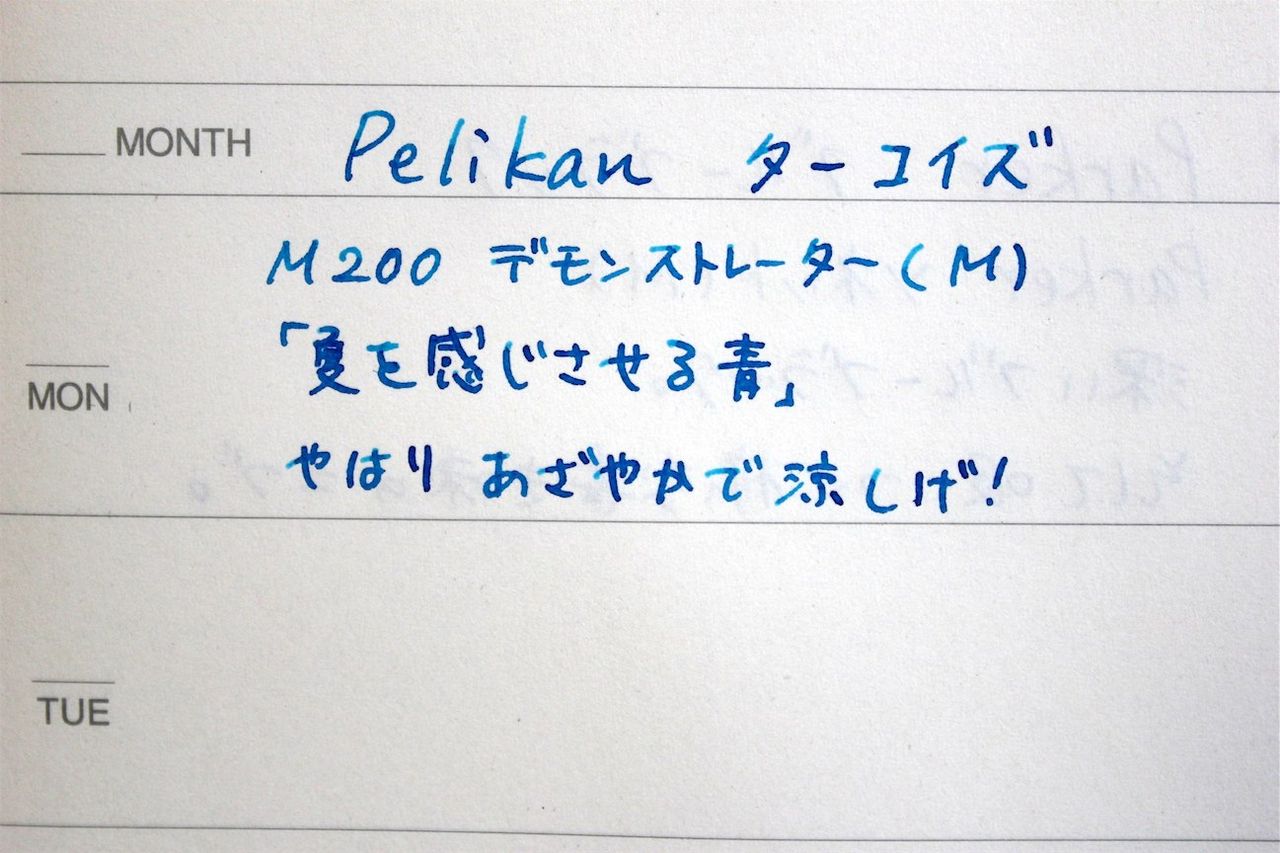 MONTH Pelikan ターコイズ
M200 デモンストレーター(M)
「夏を感じさせる青」
MON
やはり あざやかで 涼しげ!
TUE